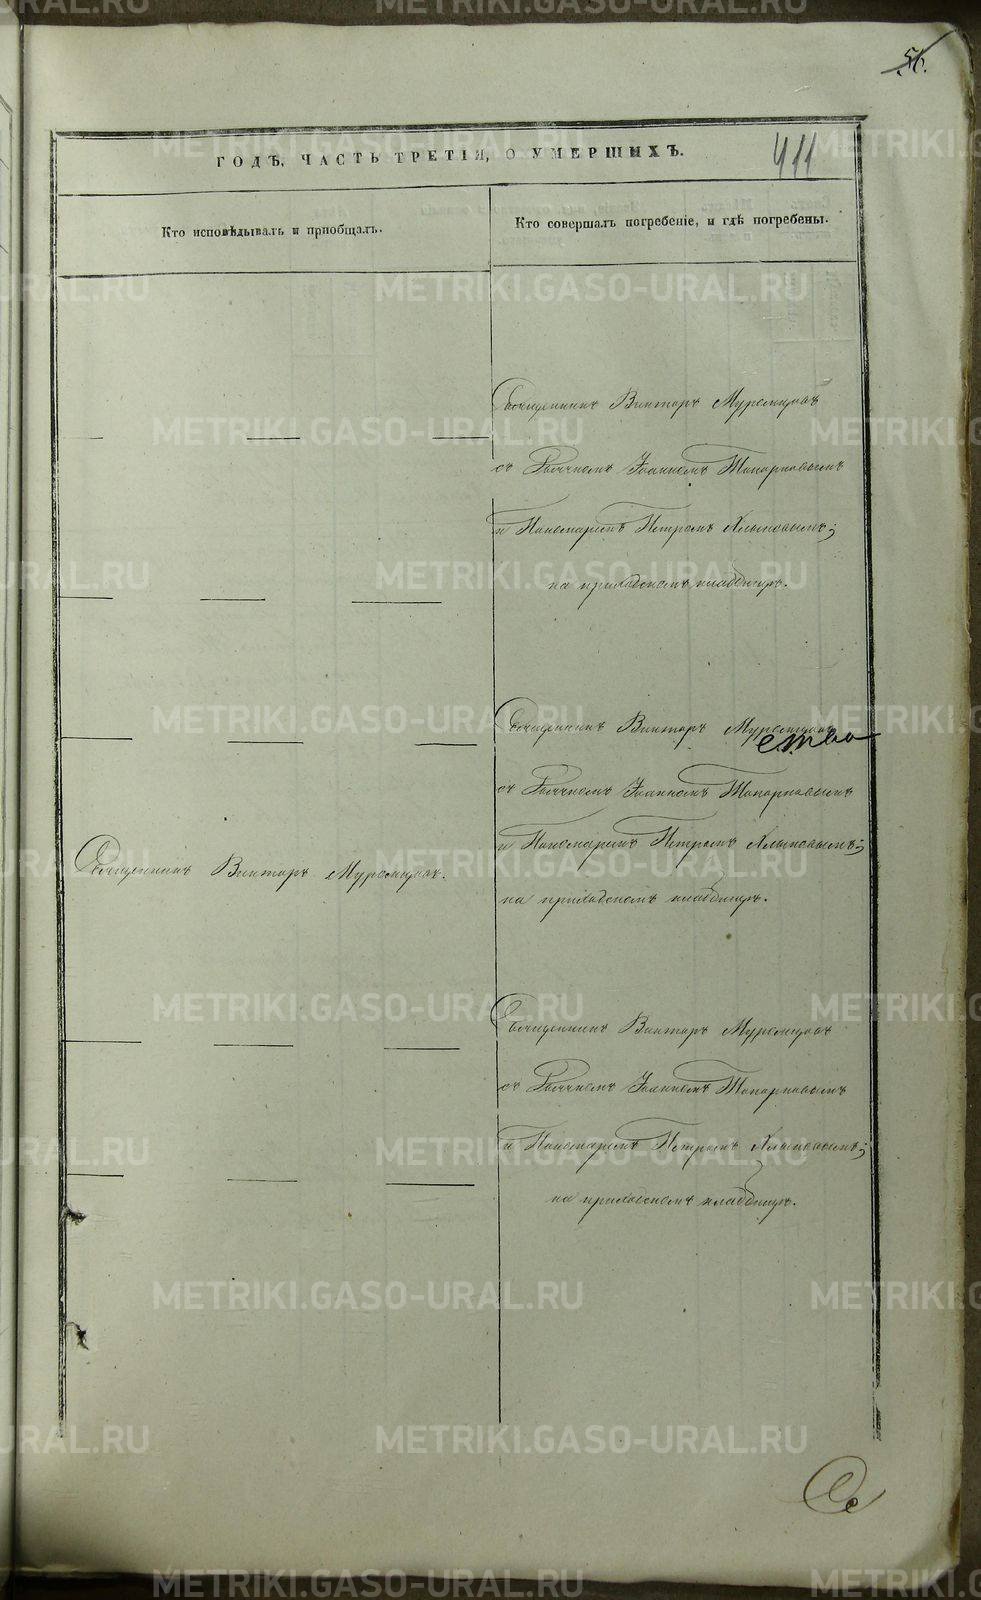 56.
411
ГОДЪ, ЧАСТЬ ТРЕТІЯ, О УМЕРШИХЪ.
Кто исповѣдывалъ и пріобщалъ.
Кто совершалъ погребеніе, и гдѣ погребены.
Священникъ Викторъ Муромцовъ
съ Іоанномъ Топорковымъ
и Пономаремъ Петромъ Хлыновымъ;
на приходскомъ кладбищѣ.
Священникъ Викторъ Муромцовъ
ства
съ Іоанномъ Топорковымъ
и Пономаремъ Петромъ Хлыновымъ;
Священникъ Викторъ Муромцовъ.
на приходскомъ кладбищѣ.
Священникъ Викторъ Муромцовъ
съ Іоанномъ Топорковымъ
и Пономаремъ Петромъ Хлыновымъ;
на приходскомъ кладбищѣ.
METRIKI.GASO-URAL.RU